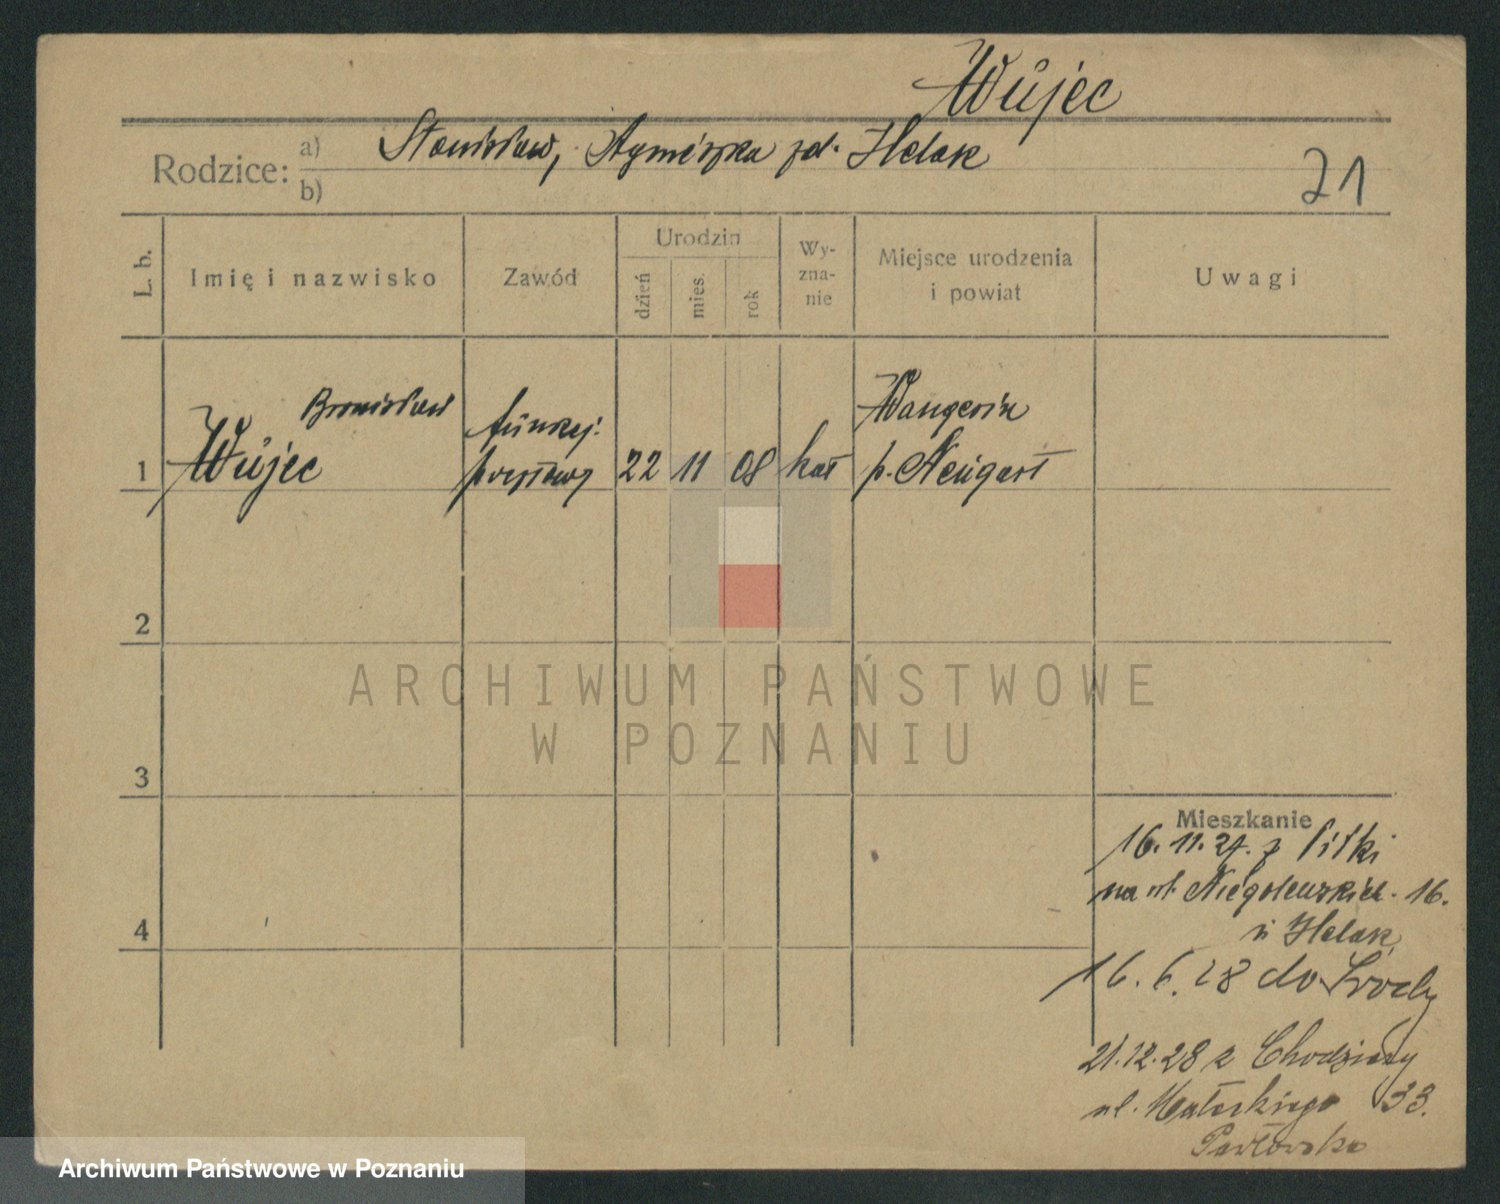 Wujec
Rodzice: a) Stanisław, Agnieszka zd. Helak
b)
21
L. b.
Imię i nazwisko
Zawód
Urodzin
dzień
mies.
rok
Wy-
zna-
nie
Miejsce urodzenia
i powiat
Uwagi
1
Bronisław
Wujec
funkcj.
pocztowy
22
11
08
kat
Wangerin
p. Neugart
2
3
4
ARCHIWUM PAŃSTWOWE
W POZNANIU
Mieszkanie
16. 11. 27. z
na ul. Niegolewskich. 16.
u Helak
16. 6. 28 do Środy
21.12.28 z Chodzieży
ul. Małeckiego 33.
Pawłowska
Archiwum Państwowe w Poznaniu